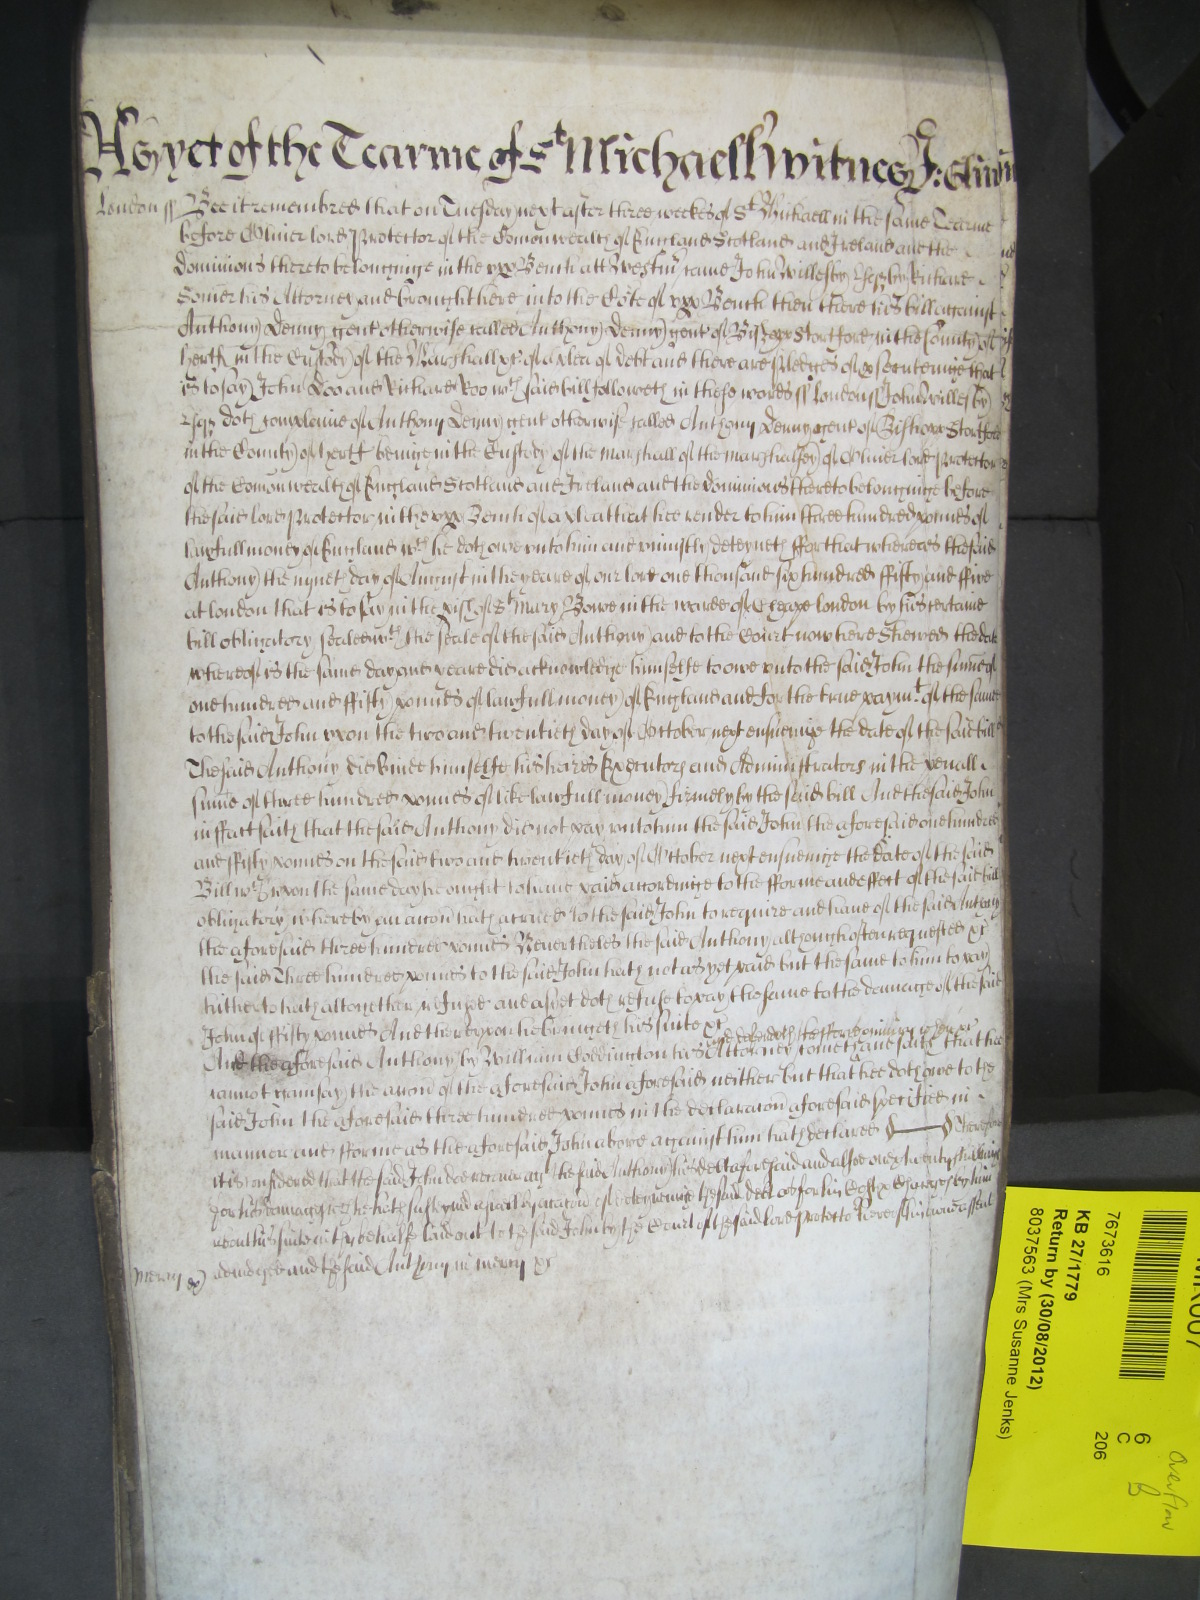 As yet of the Tearme of St Michaell witnes J:
London ss Bee it remembred that on Tuesday next after three weekes of St Michaell in the same Tearme
before Oliver lord Protector of the Comonwealth of England Scotland and Ireland and the
dominions thereto belonginge in the upp Bench att Westmr came John Willesby Esqr by Richard
Somer his Attorney and brought here into the Co͠te of upp Bench then there his bill against
Anthony Denny gent otherwise called Anthony Denny gent of Bishopps Stortford in the County of
hertf in the Custody of the Marshall &c of a plea of debt and there are pledges of prosecuteinge that
is to say John Doo and Richard Roo wch said bill followeth in these words ss London ss John Willesby
Esqr doth complaine of Anthony Denny gent otherwise called Anthony Denny gent of Bishopps Stortford
in the County of hertf beinge in the Custody of the Marshall of the Marshalsey of Oliver lord Protector
of the Comonwealth of England Scotland and Ireland and the dominions thereto belonginge before
the said lord Protector in the upp Bench of a plea that hee render to him three hundred pounds of
lawfull money of England wch he doth owe unto him and uniustly deteyneth ffor that whereas the said
Anthony the nyneth day of August in the yeare of our lord one thousand six hundred ffifty and ffive
at london that is to say in the pish of St Mary Bowe in the warde of Cheape london by his certaine
bill obligatory sealed wth the seale of the said Anthony and to the Court now here shewed the date
whereof is the same day and yeare did acknowledge himselfe to owe unto the said John the summe of
one hundred and ffifty pounds of lawfull money of England and for the true paymt of the same
to the said John upon the two and twentieth day of October next ensueinge the date of the said bill
The said Anthony did binde himselfe his heires Executors and Administrators in the penall
summe of three hundred pounds of like lawfull money firmely by the said bill And the said John
in ffact saith that the said Anthony did not pay unto him the said John the aforesaid one hundred
and ffifty pounds on the said two and twentieth day of October next ensueinge the date of the said
Bill wch upon the same day he ought to have paid accordinge to the fforme and effect of the said bill
obligatory whereby an accon hath accrued to the said John to require and have of the said Anthony
the aforesaid three hundred pounds Neverthelés the said Anthony although often requested &c
the said Three hundred pounds to the said John hath not as yet paid but the same to him to pay
hitherto hath altogether refused and as yet doth refuse to pay the same to the damage of the said
John of ffifty pounds And thereupon he bringeth his suite &c
And the aforesaid Anthony by William Coddington his Attorney cometh and defendeth the force and iniury when &c and saith that hee
cannot gainsay the accon of the aforesaid John aforesaid neither but that hee doth owe to the
said John the aforesaid three hundred pounds in the declaracon aforesaid specified in
manner and fforme as the aforesaid John above against him hath declared Therefore
it is considered that the said John doe recover agt the said Anthony his debt aforesaid and alsoe twenty shillings
for his damages wch he hath susteyned aswell by occacon of deteyninge the said debt as for his Costs & Charges by him
about his suite in this behalfe laid out to the said John by the Court of the said lord Protector here of his owne assent
Mercy &c adiudged and the said Anthony in mercy &c
7673616
KB 27/1779
Return by (30/08/2012)
8037563 (Mrs Susanne Jenks)
6
C
206
Overflow
B